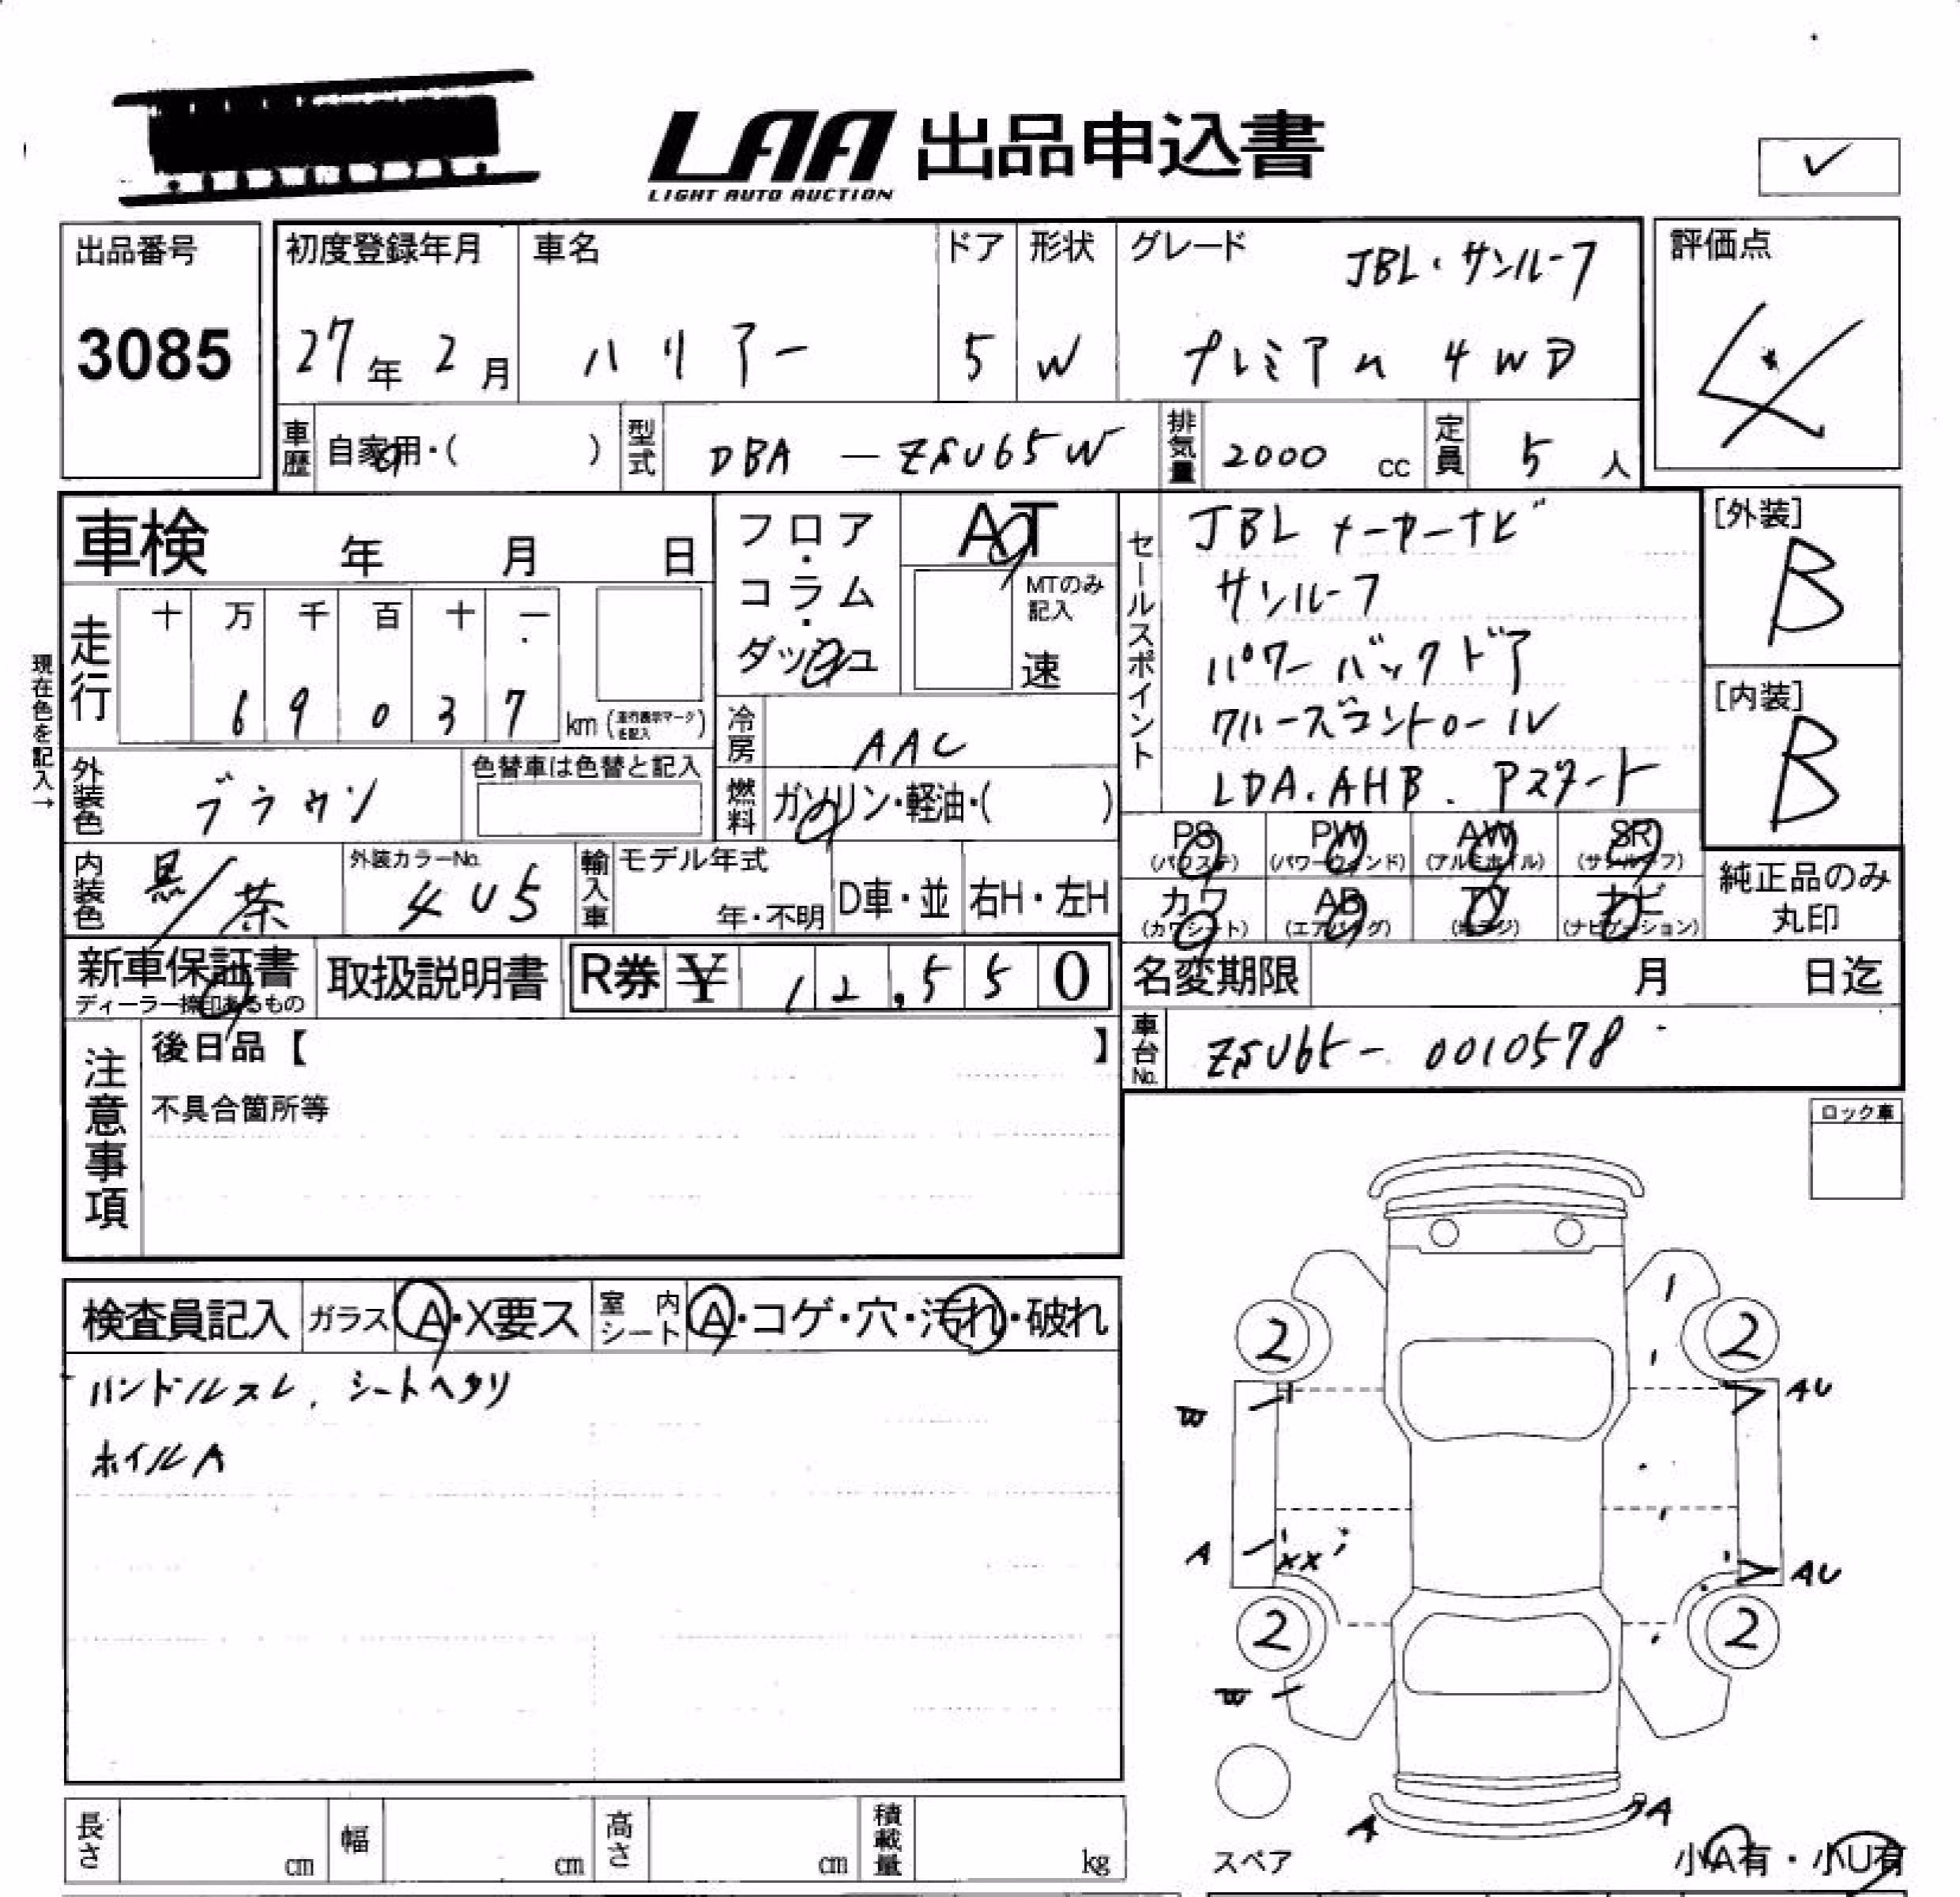 LAA 出品申込書
LIGHT AUTO AUCTION
出品番号
3085
初度登録年月
27年 2月
車名
ハリアー
ドア
5
形状
W
グレード
JBL・サンルーフ
プレミアム 4WD
評価点
4
車歴 自家用・( )
型式 DBA-ZSU65W
排気量 2000 cc
定員 5人
車検 年 月 日
走行 十 万 千 百 十 一
6 9 0 3 7 km (走行表示マークを記入)
現在色を記入→
外装色 ブラウン
色替車は色替と記入
内装色 黒/茶
外装カラーNo.
4U5
フロア・コラム・ダッシュ
AT
MTのみ記入
速
冷房 AAC
燃料 ガソリン・軽油・( )
輸入車 モデル年式
年・不明
D車・並
右H・左H
セールスポイント
JBL メーカーナビ
サンルーフ
パワーバックドア
クルーズコントロール
LDA.AHB. Pスタート
[外装]
B
[内装]
B
PS (パワステ) PW (パワーウィンド) AW (アルミホイル) SR (サンルーフ)
カワ (カワシート) AB (エアバッグ) TV ナビ (ナビゲーション)
純正品のみ丸印
新車保証書
ディーラー捺印あるもの
取扱説明書
R券 ¥ 12,550
名変期限 月 日迄
車台No. ZSU65-0010578
注意事項
後日品【 】
不具合箇所等
ロック車
検査員記入 ガラス A・X要ス 室内シート A・コゲ・穴・汚れ・破れ
ハンドルスレ、シートヘタリ
ホイルA
2 2
W AU
A XX AU
2 2
W
A A
スペア
小A有・小U有
長さ cm 幅 cm 高さ cm 積載量 kg